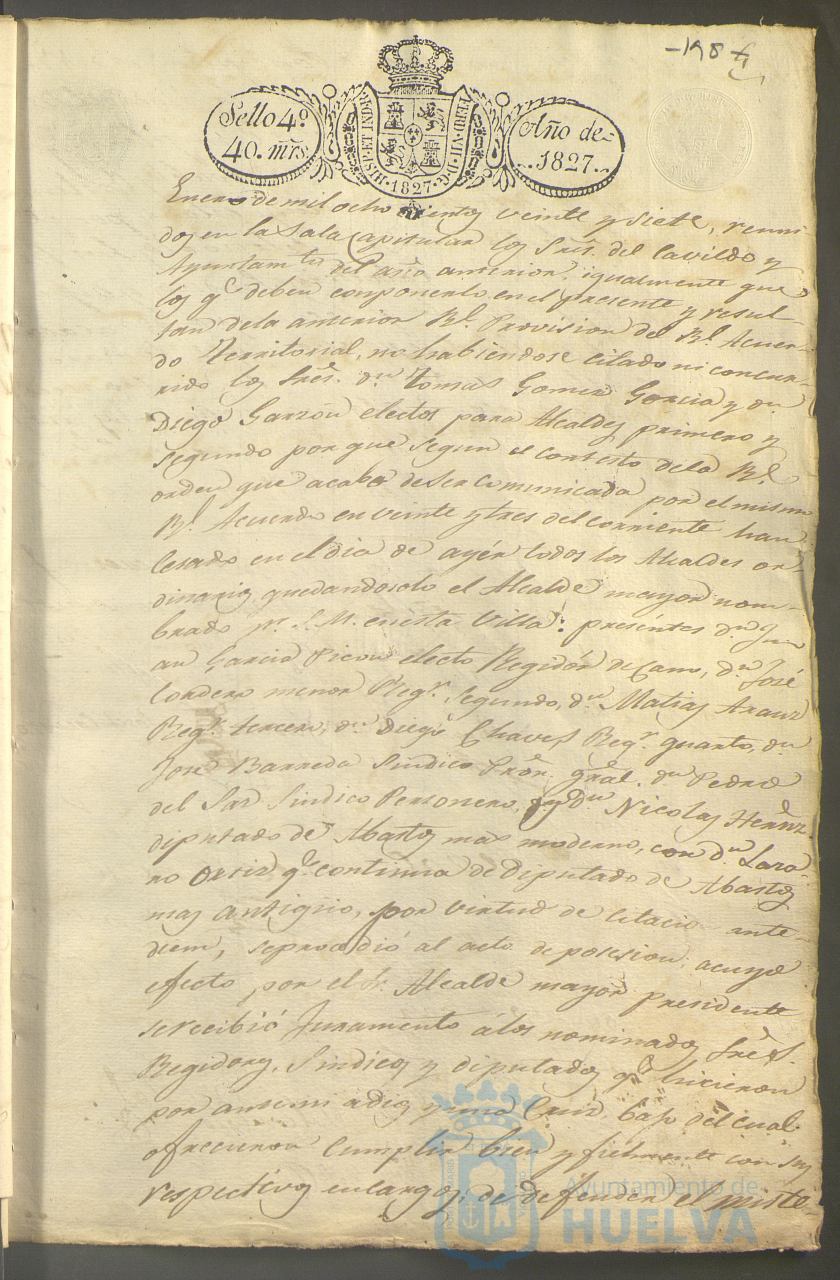 -198-
Sello 4º
40. mrs.
HISP. ET IND. R.
FERD. VII. D. G.
1827
Año de
1827.
Enero de mil ochocientos veinte y siete, reuni
dos en la Sala Capitular los Sres. del Cavildo y
Ayuntamto. del año anterior, igualmente que
los qe. deben componerlo en el presente y resul-
tan dela anterior Rl. Provision del Rl. Acuer-
do Territorial, no habiendose citado ni concur-
rido los Sres. dn. Tomas Gomez Garcia y dn.
Diego Garzon electos para Alcaldes primero y
segundo por que segun el contesto dela Rl.
orden que acaba de ser comunicada por el mismo
Rl. Acuerdo en veinte y tres del corriente han
cesado en el dia de ayer todos los Alcaldes or-
dinarios, quedando solo el Alcalde mayor nom-
brado pr. S. M. en esta Villa: presentes dn. Ju
an Garcia Picon electo Regidor decano, dn. José
Cordero menor Regr. segundo, dn. Matias Arauz
Regr. tercero, dn. Diego Chaves Regr. quarto, dn.
José Barreda Sindico Pror. gral. dn. Pedro
del Saz Sindico Personero, y dn. Nicolas Hernz.
diputado de Abastos mas moderno, con dn. Laza-
ro Ortiz qe. continua de Diputado de Abastos
mas antiguo, por virtud de citacion ante-
diem, se procedió al acto de posesion: a cuyo
efecto por el Sr. Alcalde mayor Presidente
se recibió Juramento á los nominados Sres.
Regidores, Sindicos y diputados qe. hicieron
por ante mi a dios y una Cruz bajo del cual
ofrecieron cumplir bien y fielmente con sus
respectivos encargos; de defender el miste-
Ayuntamiento de
HUELVA